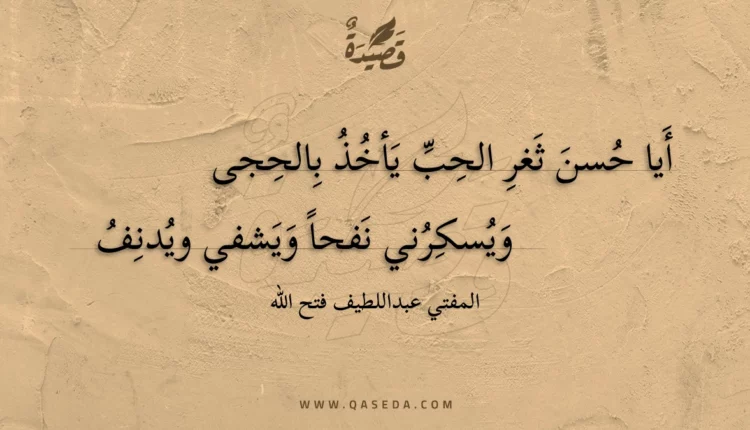 قَصِيدَةٌ
أَيا حُسنَ ثَغرِ الحِبِّ يَأخُذُ بِالحِجى
وَيُسكِرُني نَفحاً وَيَشفي ويُدنِفُ
المفتي عبداللطيف فتح الله
WWW.QASEDA.COM